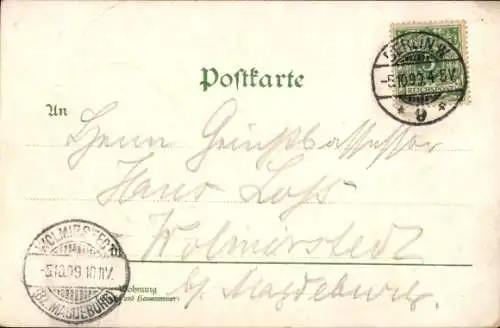 BERLIN W.
-5.10.99.4-5V.
* 9 *
REICHSPOST
Postkarte
An
Herrn Gerichtsassessor
Hans
Wolmirstedt
WOLMIRSTEDT
-5.10.99.10.11V.
(BZ. MAGDEBURG)
Wohnung
(und Hausnummer)
bz. Magdeburg